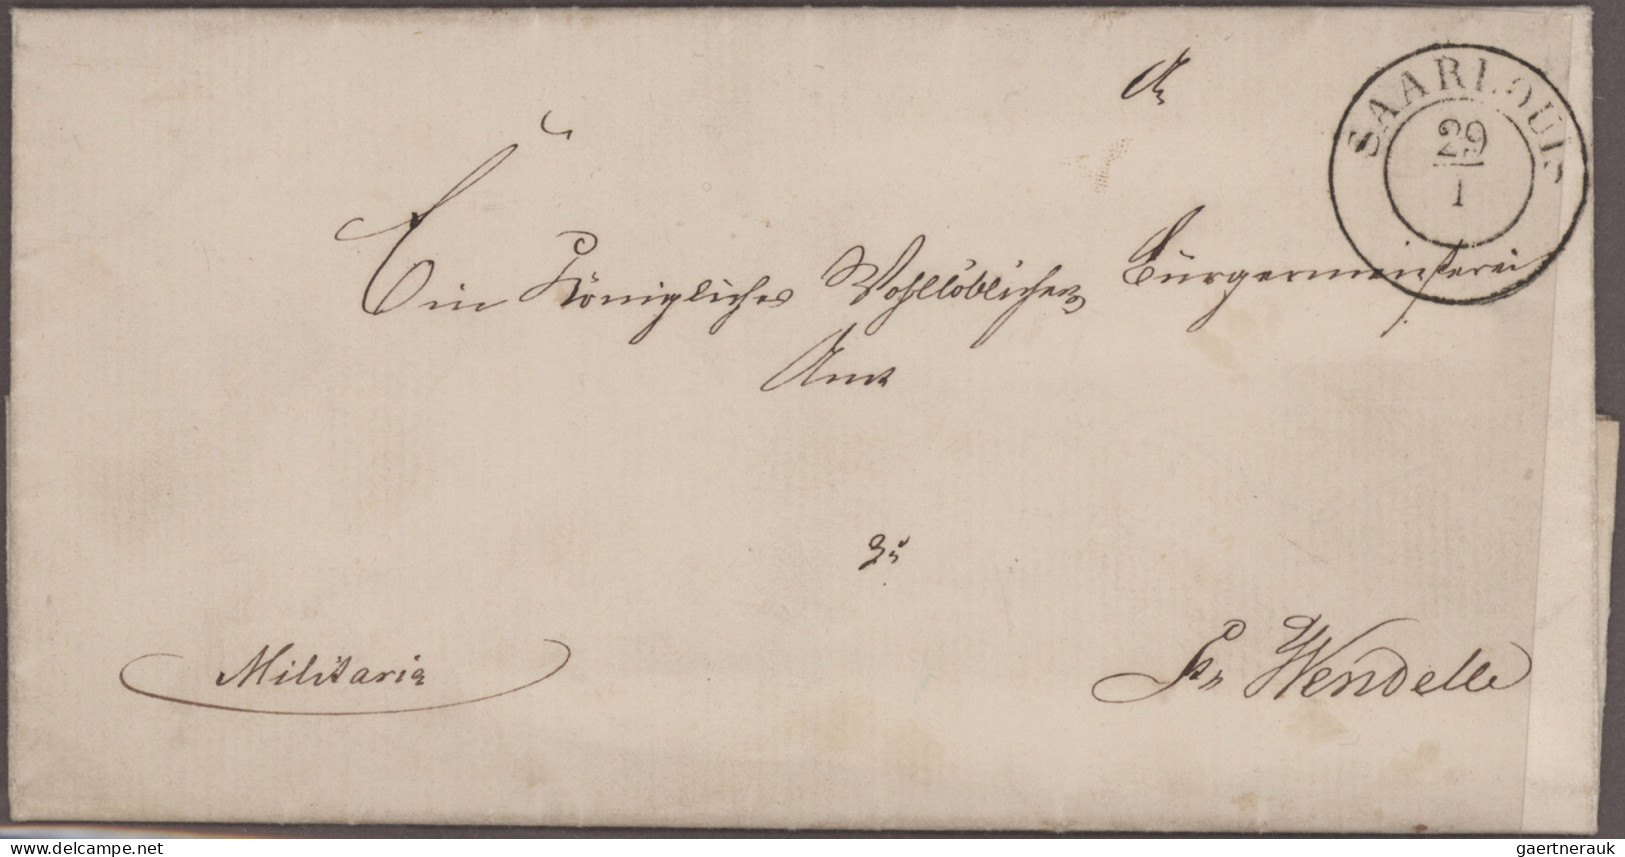 An
SAARLOUIS
29
1
Ein Königliches Wohllöbliches Bürgermeisterei
Amt
zu
Militaria
St. Wendell
delcampe.net
gaertnerauk